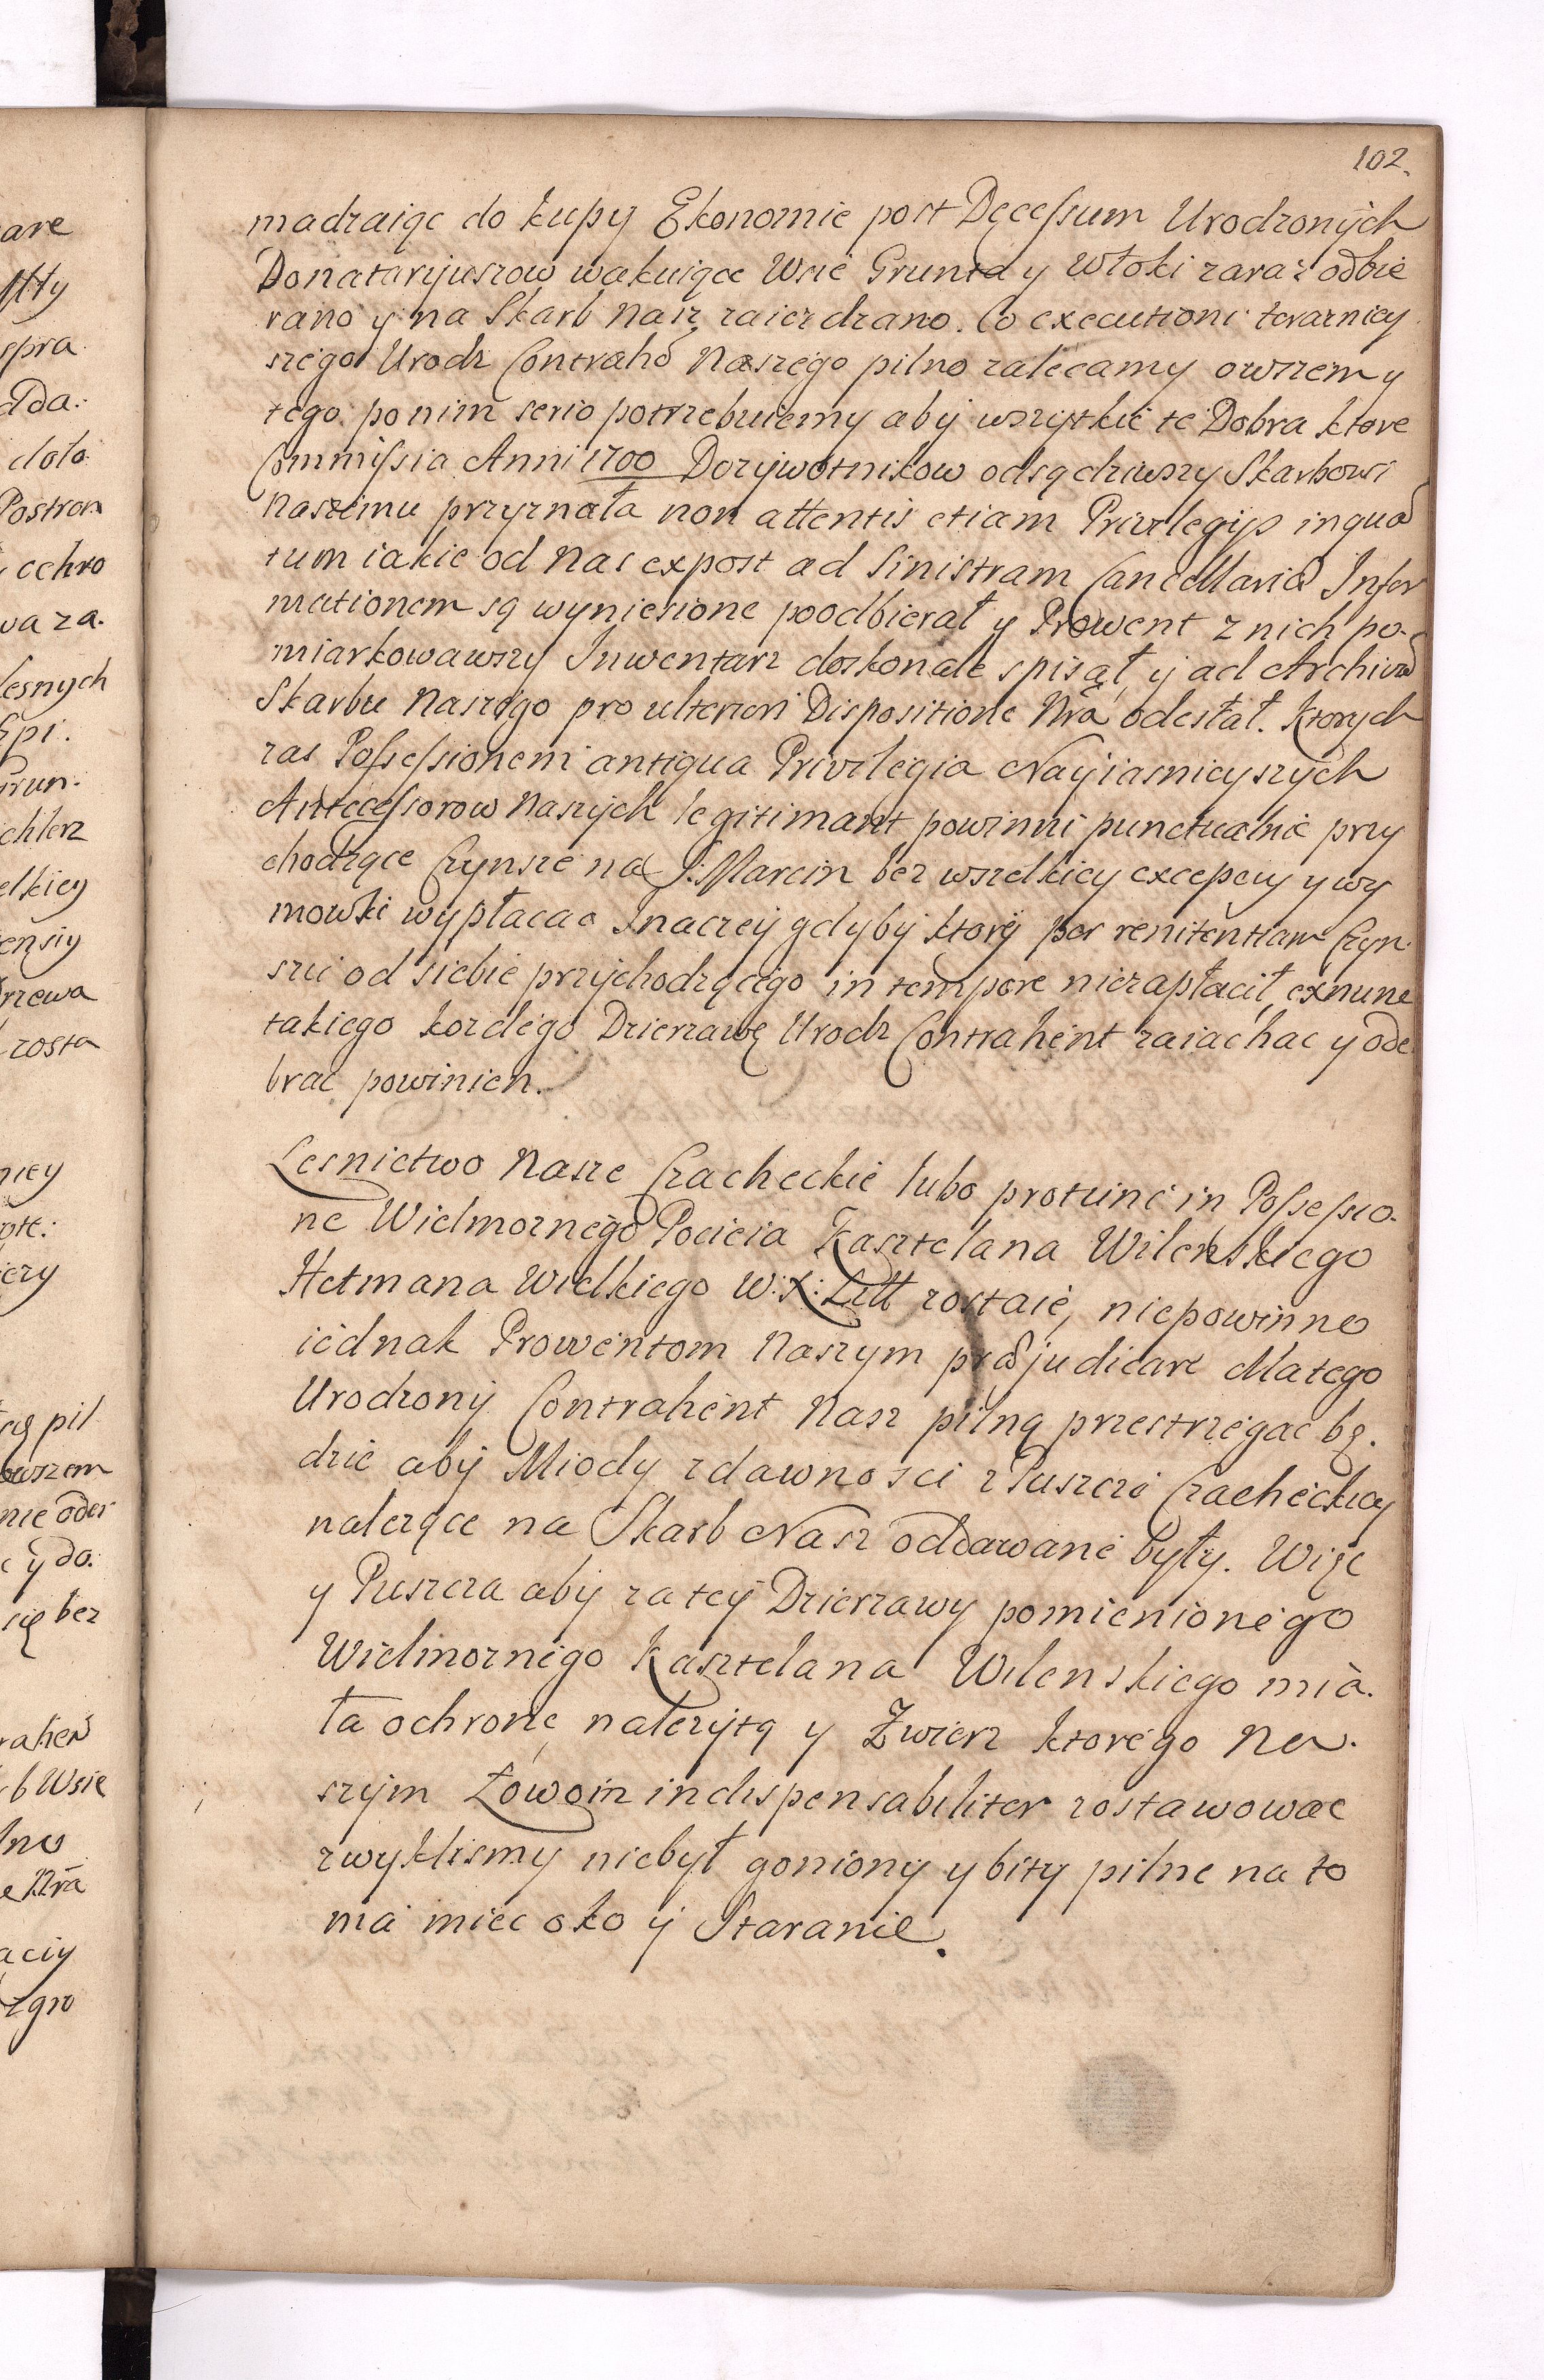 102.
madzaiąc do kupy Ekonomie post Decessum Urodzonych
Donatarijuszow wakuiące Wsie Grunta y Włoki zaraz odbie
rano y na Skarb Nasz zaierdzano. Co executioni terazniey
szego Urodz Contrahō Naszego pilno zalecamy owszem y
tego po nim serio potrzebuiemy aby wszytkie te Dobra ktore
Commissia Anni 1700 Dozywotnikow odsądziwszy Skarbowi
Naszemu przyznała non attentis etiam Privilegijs inquā
tum iakie od Nas expost ad Sinistram Cancellariæ Infor
mationem są wyniesione poodbierał y Prowent z nich po-
miarkowawszy Inwentarz doskonale spisał, y ad Archivū
Skarbu Naszego pro ulteriori Dispositione Nrā odesłał. Ktorych
zas Possessionem antiqua Privilegia Nayiasnieyszych
Antecessorow Naszych legitimant powinni punctualnie przy
chodzące Czynsze na S: Marcin bez wszelkiey excepcyi y wy
mowki wypłacac Inaczey gdyby ktory per renitentiam Czyn
szu od siebie przychodzącego in tempore niezapłacił, exnunc
takiego kozdego Dzierzawę Urodz Contrahent zaiachac y ode
brac powinien.
Lesnictwo Nasze Czacheckie lubo protunc in Possessio-
ne Wielmoznego Pocieia Kasztelana Wilenskiego
Hetmana Wielkiego W: X: Litt zostaie, niepowinno
iednak Prowentom Naszym præjudicare dlatego
Urodzony Contrahent Nasz pilną przestrzegac bę.
dzie aby Miody zdawnosci z Puszczi Czacheckiey
nalezące na Skarb Nasz oddawane były. Więc
y Puszcza aby za tey Dzierzawy pomienionego
Wielmoznego Kasztelana Wilenskiego mia.
ła ochronę, nalezytą y Zwierz ktorego Na.
szym Łowom indispensabiliter zostawowac
zwyklismy niebył goniony y bity pilne na to
ma miec oko y Staranie.